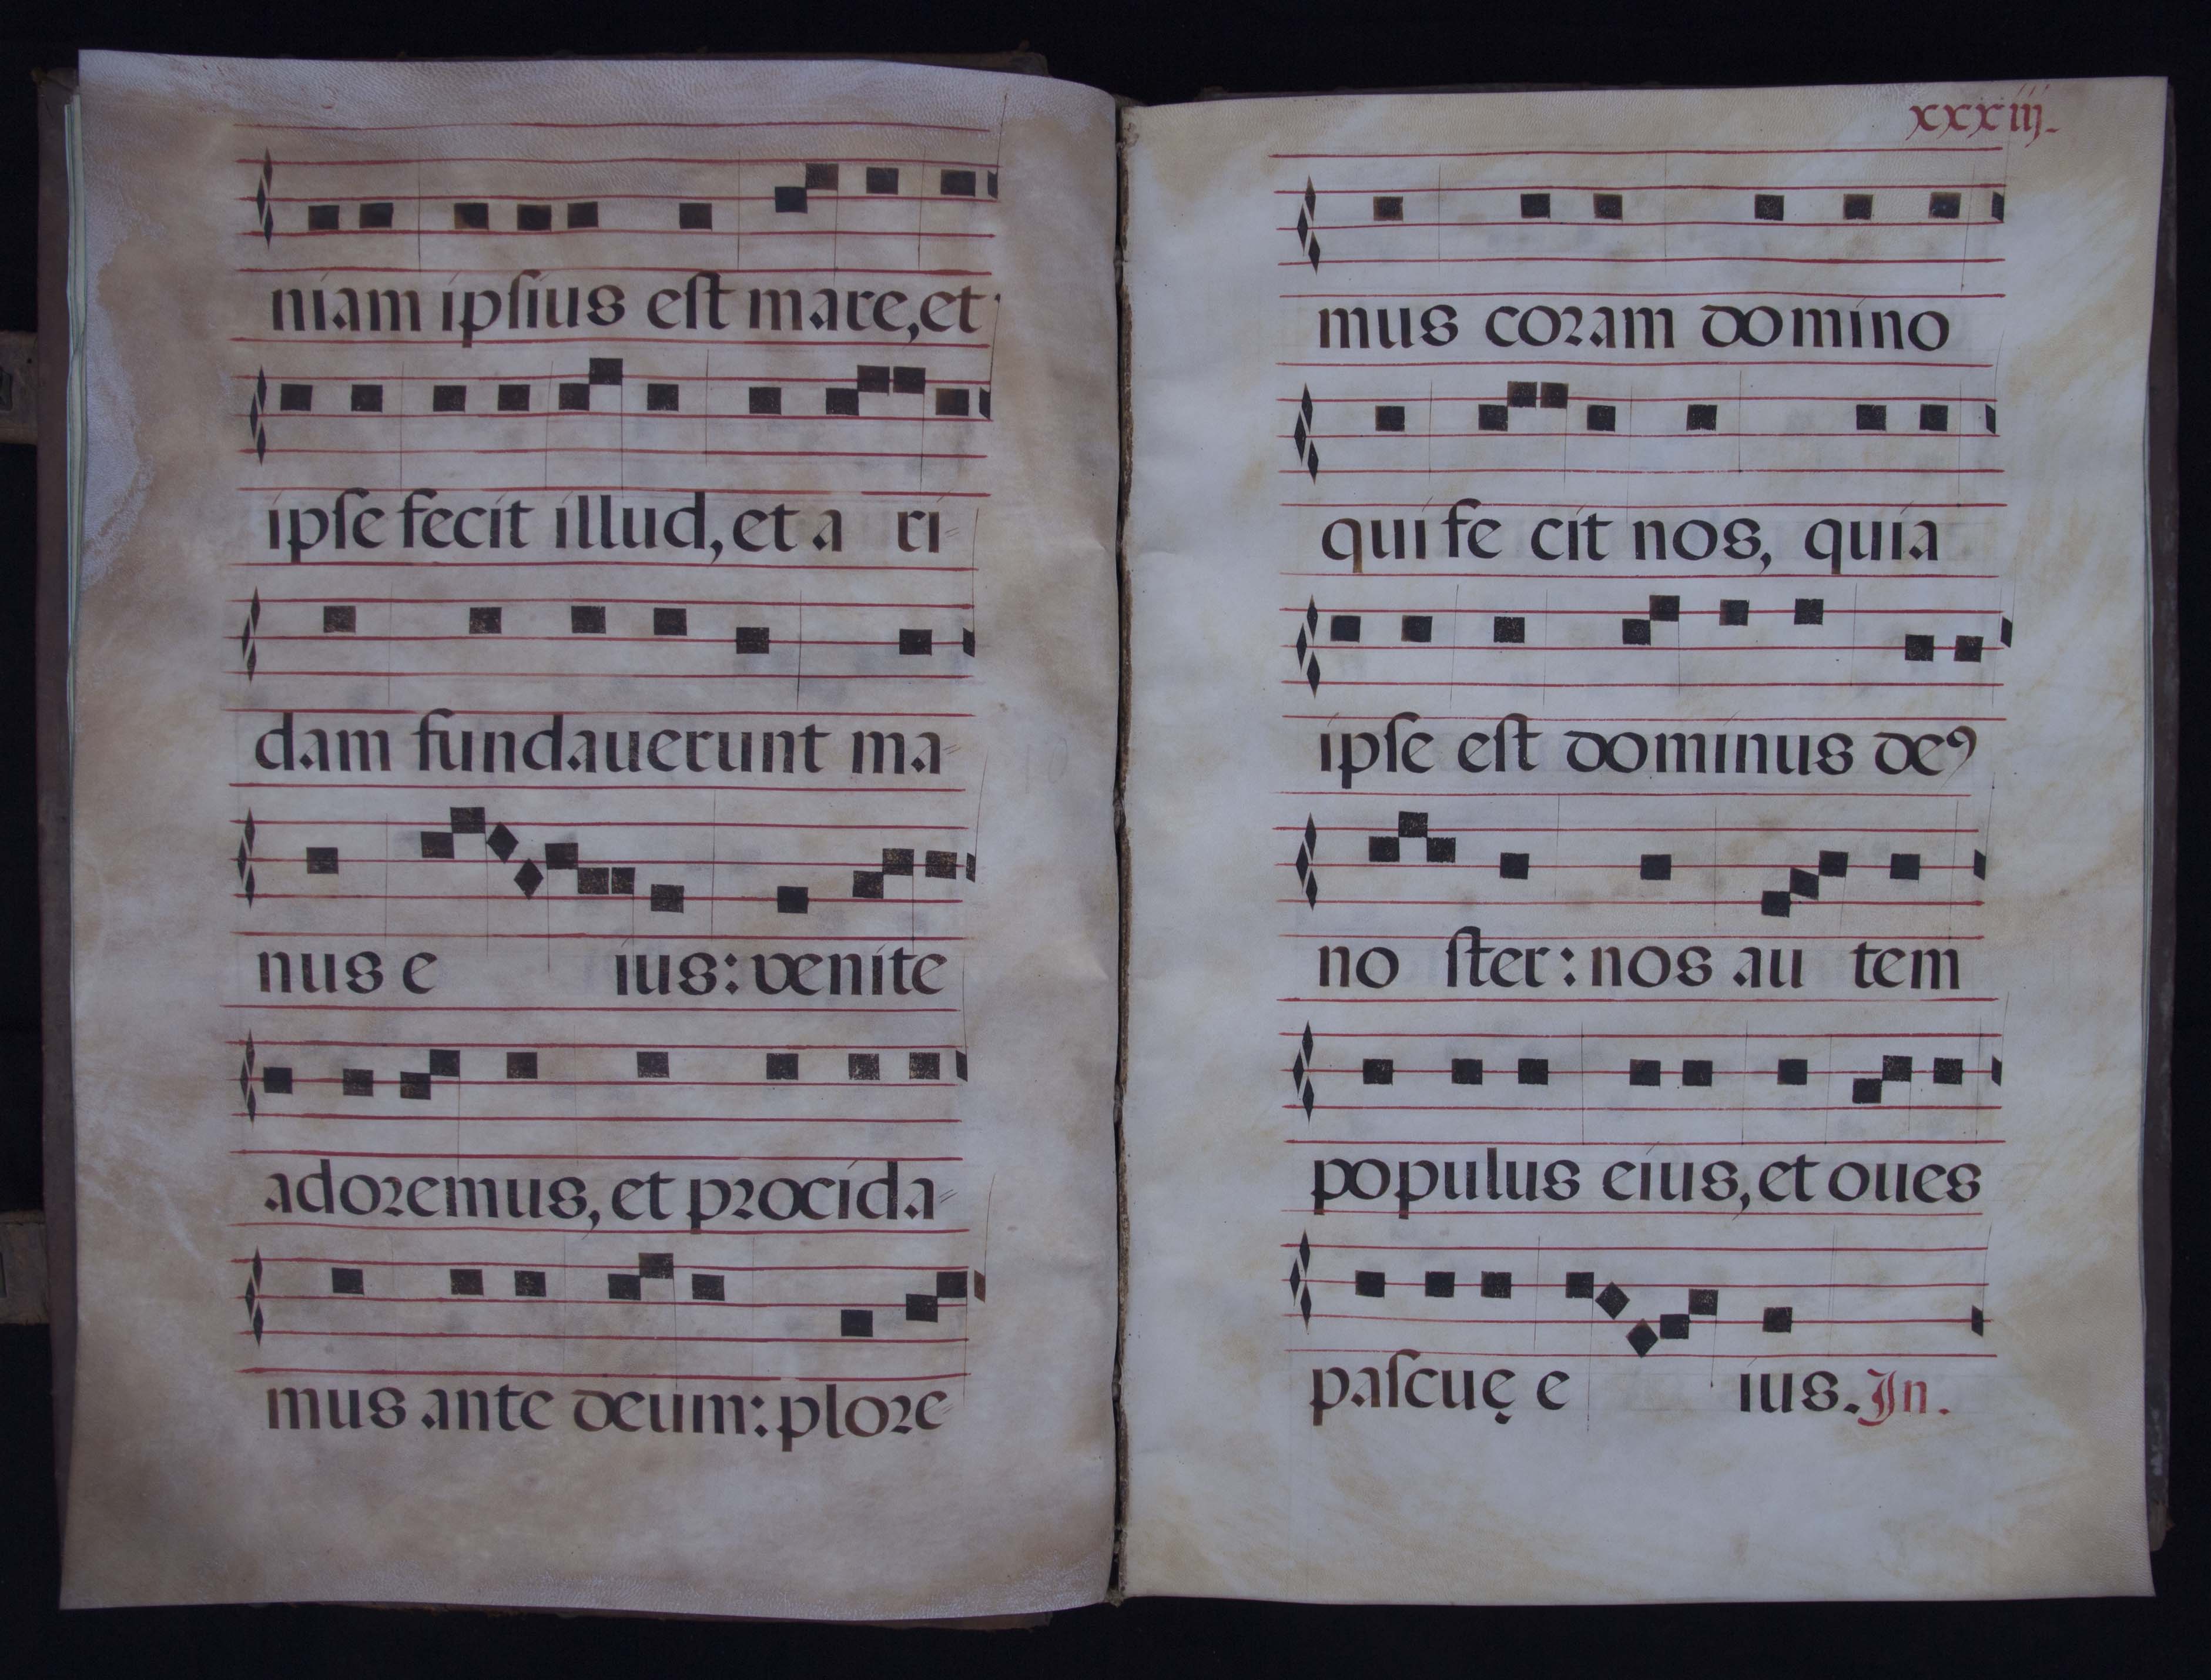 niam ipſius eſt mare, et
ipſe fecit illud, et a ri=
dam fundauerunt ma=
nus e ius: venite
adoꝛemus, et pꝛocida=
mus ante deum: ploꝛe=
xxxiij.
mus coꝛam domino
qui fe cit nos, quia
ipſe eſt dominus deꝰ
no ſter: nos au tem
populus eius, et oues
paſcuę e ius. In.